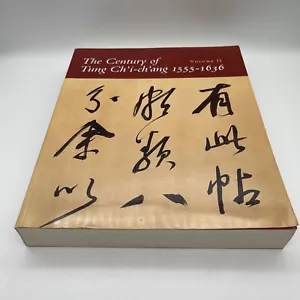 The Century of
Tung Ch'i-ch'ang 1555-1636
VOLUME II
有此帖
類八
分余以